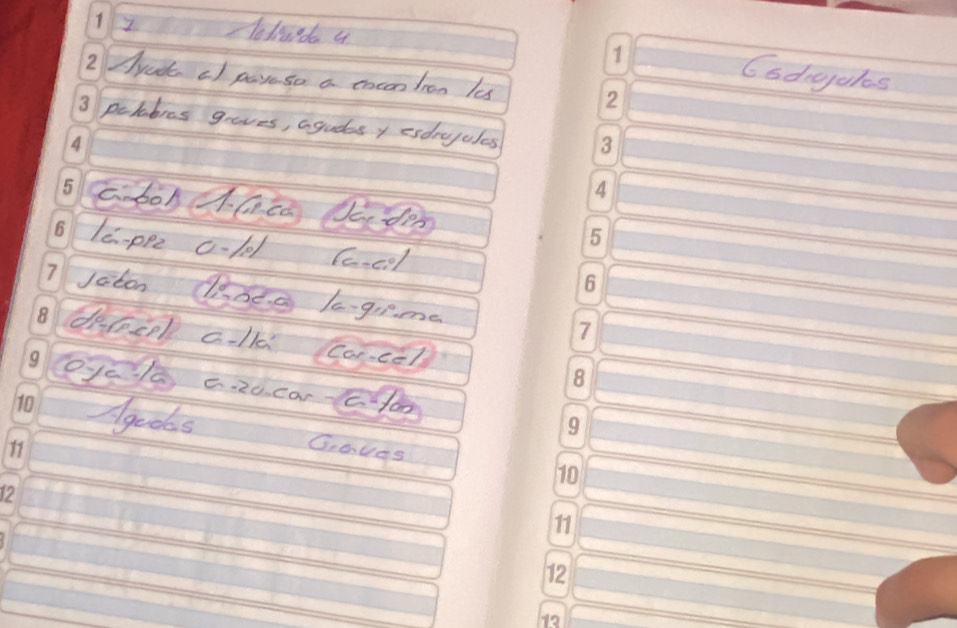 1 Actividad 4
2 Ayuda al payaso a encontrar las
3 palabras graves, agudas y esdrujulas
4
5 a-bol A-fri-ca Jar-din
6 lá-piz a-lel fa-cil
7 Jabon li-ne-a la-gri-ma
8 di-fi-cil a-llá car-cel
9 o-ja-la a-zu-car
10 Agudas Graves
11
12
1 Esdrujulas
2
3
4
5
6
7
8
9
10
11
12
13